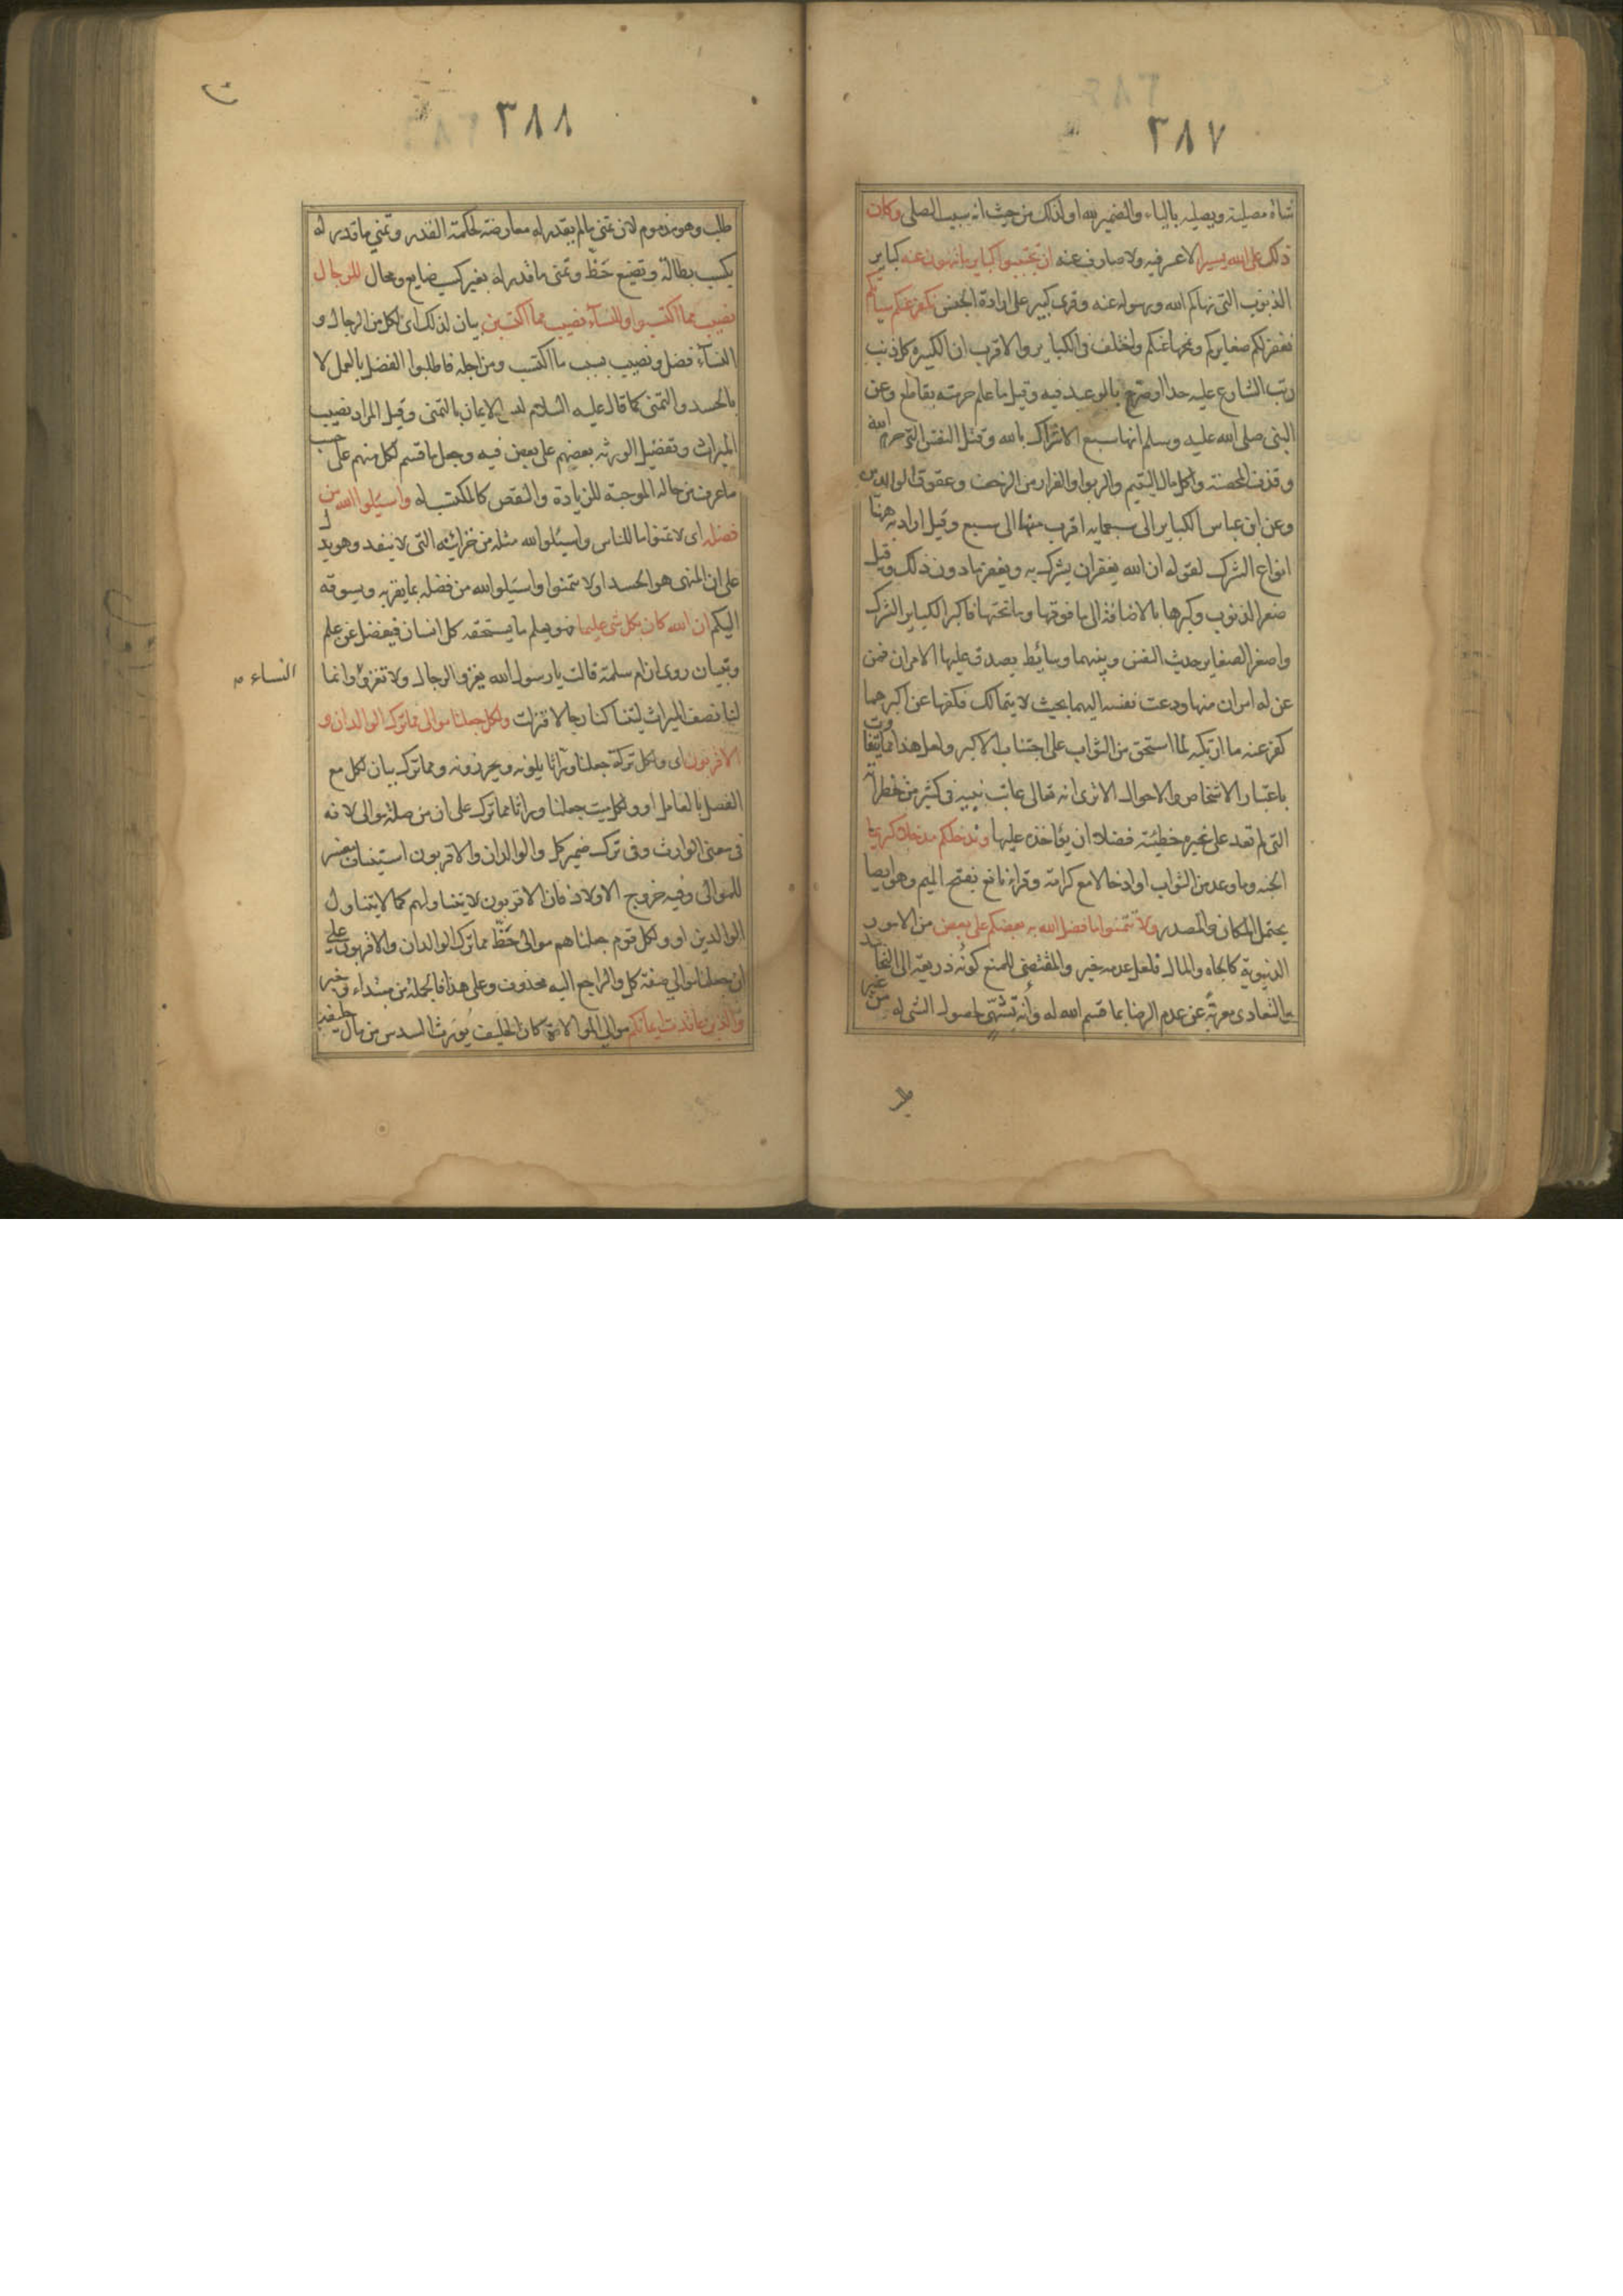 ٣٨٧
شاة مصلية ويصليه بالياء والضمير لله او لذلك من حيث انه سبب الصلى وكان
ذلك على الله يسيرا لا عسر فيه ولا صارف عنه ان تجتنبوا كباير ما تنهون عنه كباير
الذنوب التى نهاكم الله ورسوله عنه وقرى كبير على ارادة الجنس نكفر عنكم سياتكم
نغفر لكم صغايركم ونمحها عنكم واختلف فى الكباير والاقرب ان الكبيرة كل ذنب
رتب الشارع عليه حدا او صرح بالوعيد فيه وقيل ما علم حرمته بقاطع وعن
النبى صلى الله عليه وسلم انها سبع الاشراك بالله وقتل النفس التى حرم الله
وقذف المحصنة واكل مال اليتيم والربوا والفرار من الزحف وعقوق الوالدين
وعن ابن عباس الكباير الى سبعماية اقرب منها الى سبع وقيل اراد به ههنا
انواع الشرك لقوله ان الله يغفر ان يشرك به ويغفر ما دون ذلك وقيل
صغر الذنوب وكبرها بالاضافة الى ما فوقها وما تحتها فاكبر الكباير الشرك
واصغر الصغاير حديث النفس وبينهما وسايط يصدق عليها الامران فمن
عن له امران منها ودعت نفسه اليهما بحيث لا يتمالك فكفها عن اكبرهما
كفر عنه ما ارتكبه لما استحق من الثواب على اجتناب الاكبر ولعل هذا مما يتفاوت
باعتبار الاشخاص والاحوال الا ترى انه تعالى عاتب نبيه فى كثير من خطراته
التى لم تعد على غيره خطيئة فضلا ان يؤاخذه عليها وندخلكم مدخلا كريما
الجنة وما وعد من الثواب او ادخالا مع كرامة وقراء نافع بفتح الميم وهو ايضا
يحتمل المكان والمصدر ولا تتمنوا ما فضل الله به بعضكم على بعض من الامور
الدنيوية كالجاه والمال فلعل عدمه خير والمقتضى للمنع كونه ذريعة الى التحاسد
والتعادى معربة عن عدم الرضا بما قسم الله له وانه تشهى لحصول الشى له من غير
٣٨٨
طلب وهو مذموم لان تمنى ما لم يقدر له معارضة لحكمة القدر وتمنى ما قدر له
بكسب بطالة وتضيع حظ وتمنى ما قدر له بغير كسب ضايع ومحال للرجال
نصيب مما اكتسبوا وللنسآء نصيب مما اكتسبن بيان لذلك اى لكل من الرجال و
النسآء فضل ونصيب بسبب ما اكتسب ومن اجله فاطلبوا الفضل بالعمل لا
بالحسد والتمنى كما قال عليه السلام ليس الايمان بالتمنى وقيل المراد نصيب
الميراث وتفضيل الورثه بعضهم على بعض فيه وجعل ما قسم لكل منهم على حسب
ما عرف من حاله الموجبة للزيادة والنقص كالمكتسب له واسيلوا الله من
فضله اى لا تتمنوا ما للناس واسيلوا الله مثله من خزائنه التى لا ينفد وهو يدل
على ان المنهى هو الحسد او لا تتمنوا واسيلوا الله من فضله بما يقربه ويسوقه
اليكم ان الله كان بكل شى عليما فهو يعلم ما يستحقه كل انسان فيفضل عن علم
وتبيان روى ان ام سلمة قالت يا رسول الله يغزو الرجال ولا نغزو وانما
لنا نصف الميراث ليتنا كنا رجالا فنزلت ولكل جعلنا موالى مما ترك الوالدان و
الاقربون اى ولكل تركة جعلنا وراثا يلونه ويحرزونه ومما ترك بيان لكل مع
الفصل بالعامل او ولكل ميت جعلنا وراثا مما ترك على ان من صلة موالى لانه
فى معنى الوارث وفى ترك ضمير كل والوالدان والاقربون استيناف مفسر
للموالى وفيه خروج الاولاد فان الاقربون لا يتناولهم كما لا يتناول
الوالدين او ولكل قوم جعلناهم موالى حظ مما ترك الوالدان والاقربون على
ان جعلنا موالى صفة كل والراجع اليه محذوف وعلى هذا فالجملة من مبتداء وخبر
والذين عاقدت ايمانكم موالى الموالاة كان الحليف يورث السدس من مال حليفه
النساء